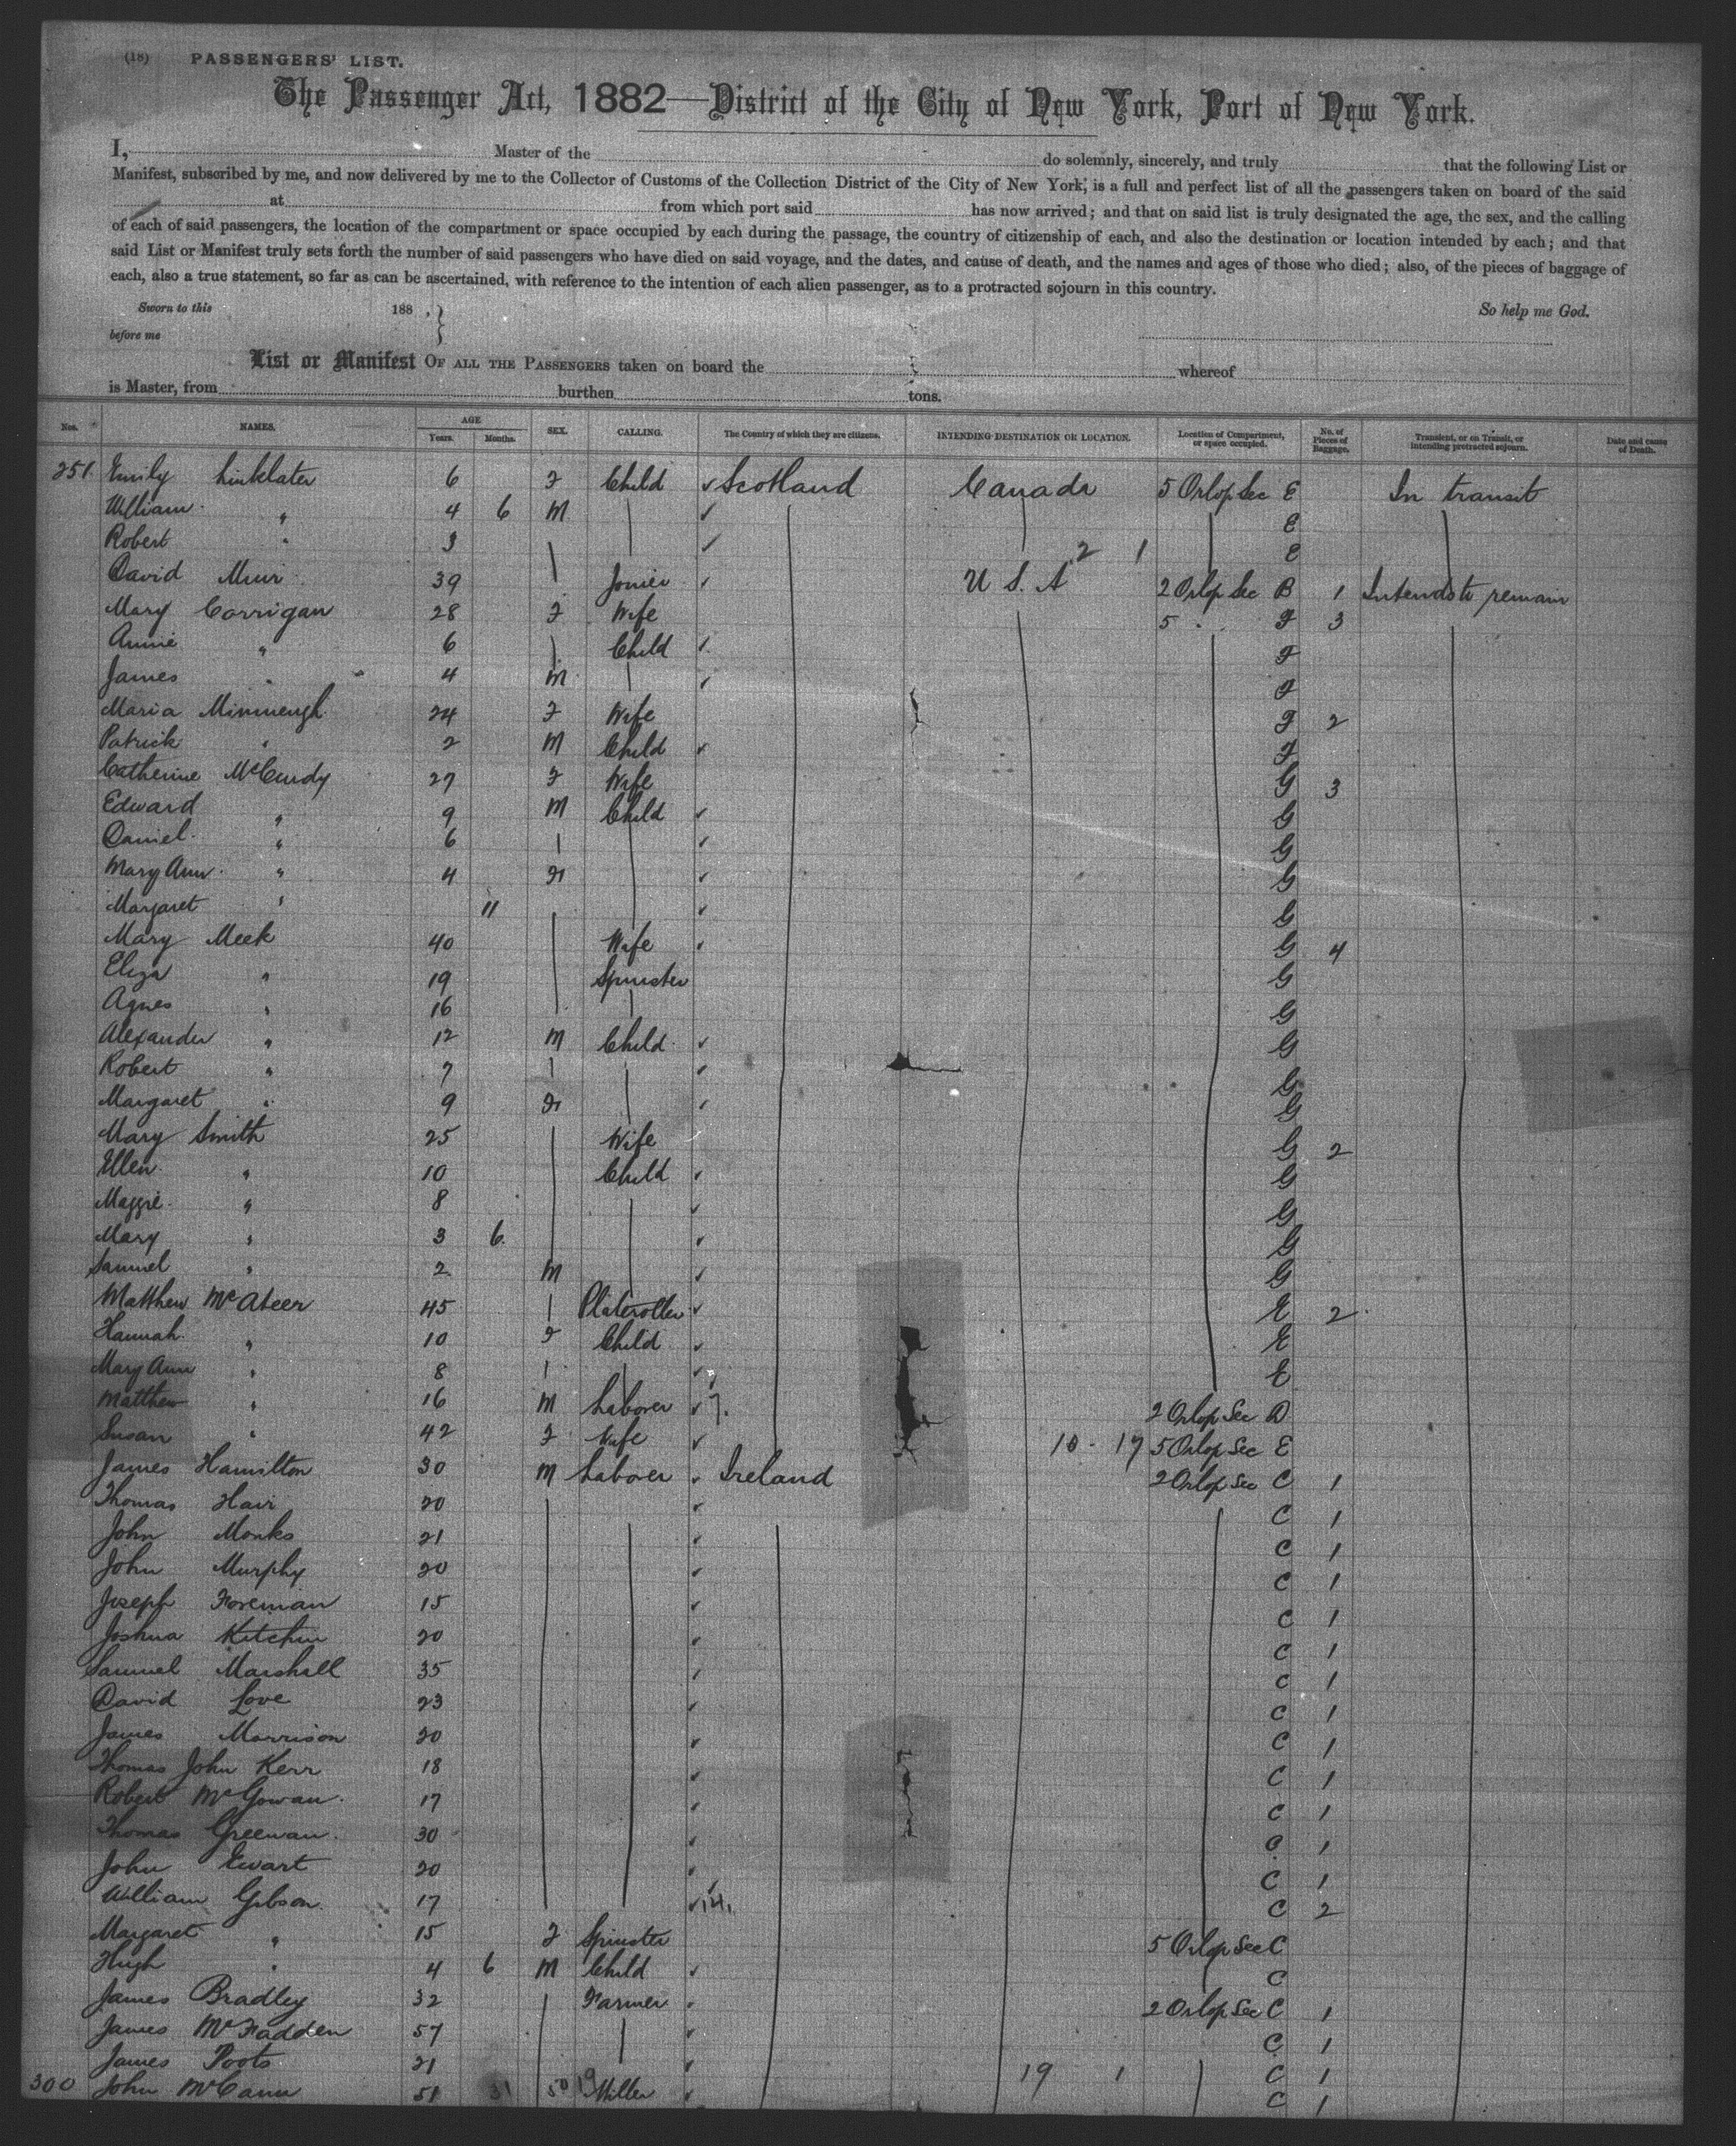 (18) PASSENGERS' LIST.
The Passenger Act, 1882—District of the City of New York, Port of New York.
I, Master of the do solemnly, sincerely, and truly that the following List or
Manifest, subscribed by me, and now delivered by me to the Collector of Customs of the Collection District of the City of New York, is a full and perfect list of all the passengers taken on board of the said
at from which port said has now arrived; and that on said list is truly designated the age, the sex, and the calling
of each of said passengers, the location of the compartment or space occupied by each during the passage, the country of citizenship of each, and also the destination or location intended by each; and that
said List or Manifest truly sets forth the number of said passengers who have died on said voyage, and the dates, and cause of death, and the names and ages of those who died; also, of the pieces of baggage of
each, also a true statement, so far as can be ascertained, with reference to the intention of each alien passenger, as to a protracted sojourn in this country.
Sworn to this 188 , } So help me God.
before me
List or Manifest OF ALL THE PASSENGERS taken on board the whereof
is Master, from burthen tons.
Nos. NAMES. AGE Years. Months. SEX. CALLING. The Country of which they are citizens. INTENDING DESTINATION OR LOCATION. Location of Compartment, or space occupied. No. of Pieces of Baggage. Transient, or on Transit, or intending protracted sojourn. Date and cause of Death.
251 Emily Linklater 6 F Child ✓ Scotland Canada 5 Orlop Sec E In transit
William " 4 6 M ✓ E
Robert " 3 ✓ 2 1 E
David Muir 39 Joiner ✓ U.S.A 2 Orlop Sec B 1 Intends to remain
Mary Corrigan 28 F Wife 5 F 3
Annie " 6 Child ✓ F
James " 4 M ✓ F
Maria 24 F Wife F 2
Patrick " 2 M Child ✓ F
Catherine McCurdy 27 F Wife G 3
Edward " 9 M Child ✓ G
Daniel " 6 ✓ G
Mary Ann " 4 F ✓ G
Margaret " 11 ✓ G
Mary Meek 40 Wife ✓ G 4
Eliza " 19 Spinster G
Agnes " 16 G
Alexander " 12 M Child ✓ G
Robert " 7 ✓ G
Margaret " 9 F ✓ G
Mary Smith 25 Wife G 2
Ellen " 10 Child ✓ G
Maggie " 8 ✓ G
Mary " 3 6 ✓ G
Samuel " 2 M ✓ G
Matthew McAteer 45 Plateroller ✓ E 2
Hannah " 10 F Child ✓ E
Mary Ann " 8 ✓ E
Matthew " 16 M Laborer ✓ 2 Orlop Sec D
Susan " 42 F Wife ✓ 10 - 17 5 Orlop Sec E
James Hamilton 30 M Laborer ✓ Ireland 2 Orlop Sec C 1
Thomas Hair 20 ✓ C 1
John Monks 21 ✓ C 1
John Murphy 20 ✓ C 1
Joseph Foreman 15 ✓ C 1
Joshua Kitchin 20 ✓ C 1
Samuel Marshall 35 ✓ C 1
David Love 23 ✓ C 1
James Morrison 20 ✓ C 1
Thomas John Kerr 18 ✓ C 1
Robert McGowan 17 ✓ C 1
Thomas Greenan 30 ✓ C 1
John Ewart 20 ✓ C 1
William Gibson 17 ✓ C 2
Margaret " 15 F Spinster 5 Orlop Sec C
Hugh " 4 6 M Child ✓ C
James Bradley 32 Farmer ✓ 2 Orlop Sec C 1
James McFadden 57 ✓ C 1
James Poots 21 ✓ 19 1 C 1
300 John McCann 51 31 50 19 Miller ✓ C 1